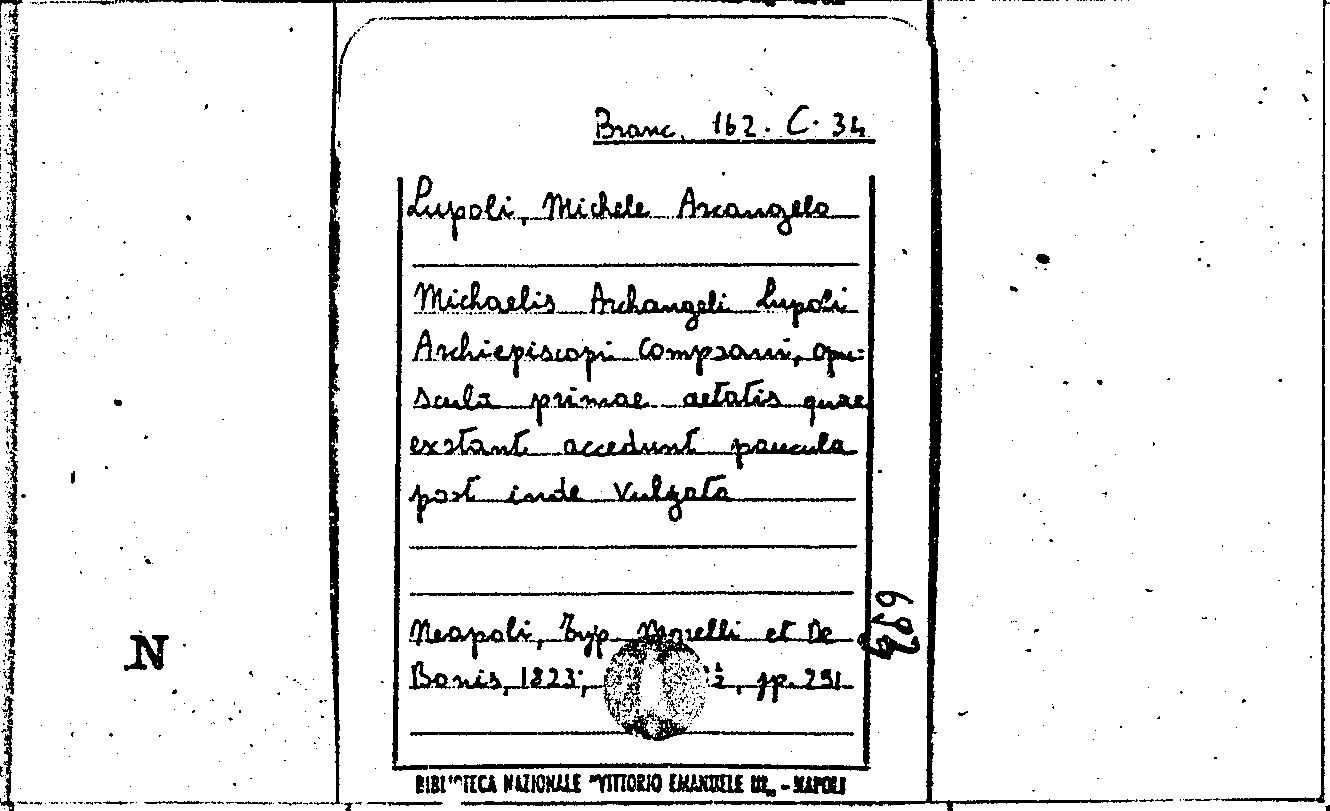 Branc. 162. C. 34
Lupoli, Michele Arcangelo
Michaelis Archangeli Lupoli
Archiepiscopi Compsani, opu=
scula primae aetatis quae
exstant accedunt paucula
post inde vulgata
Neapoli, Typ. et De
Bonis, 1823, pp. 291
BIBLIOTECA NAZIONALE "VITTORIO EMANUELE III„ - NAPOLI
N